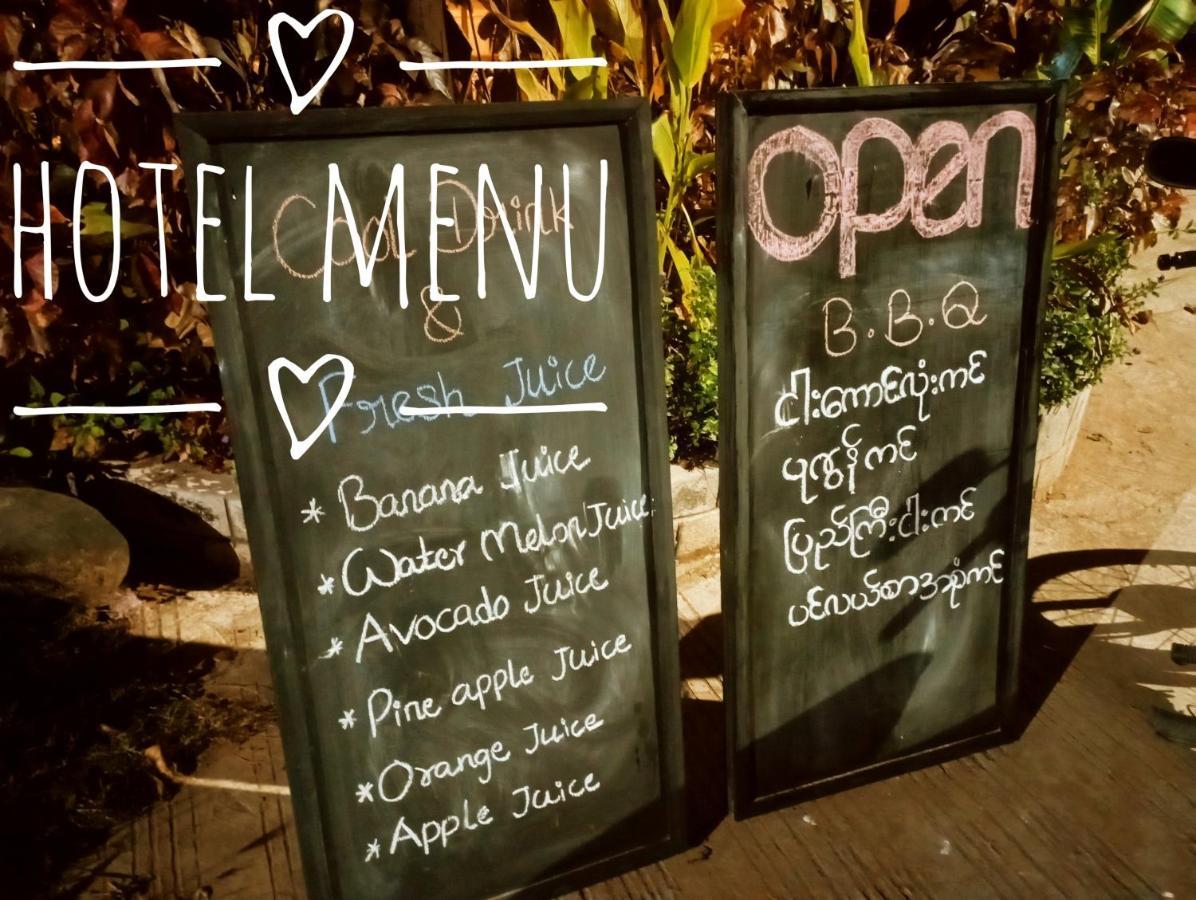 HOTEL MENU
Cool Drink
&
Fresh Juice
* Banana Juice
* Water Melon Juice
* Avocado Juice
* Pine apple Juice
* Orange Juice
* Apple Juice
open
B.B.Q
ငါးကောင်လုံးကင်
ပုဇွန်ကင်
ပြည်ကြီးငါးကင်
ပင်လယ်စာအစုံကင်